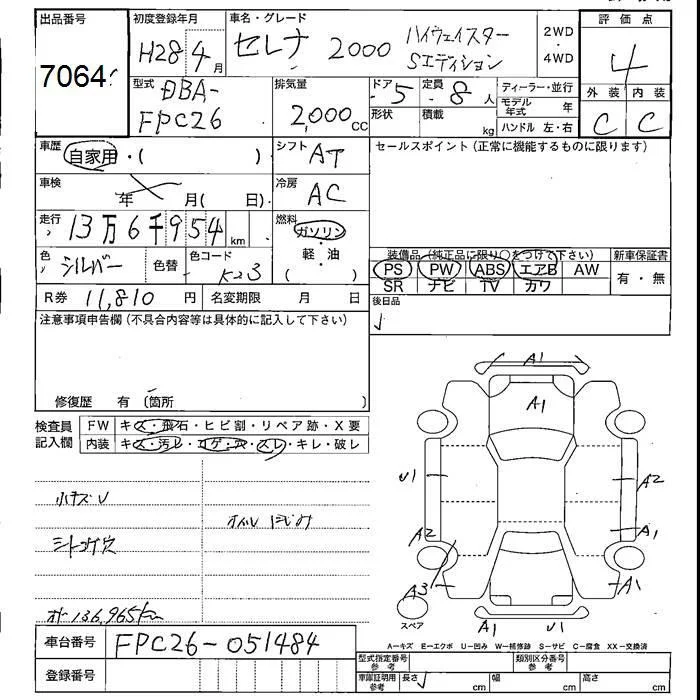 出品番号
7064
初度登録年月
H28 4月
車名・グレード
セレナ 2000 ハイウェイスター
Sエディション
2WD
・
4WD
評価点
4
外装 内装
C C
型式
DBA-
FPC26
排気量
2,000cc
ドア 5
形状
定員 8人
積載 kg
ディーラー・並行
モデル年式 年
ハンドル 左・右
車歴
自家用・( )
シフト AT
セールスポイント(正常に機能するものに限ります)
車検
年 月( 日)
冷房
AC
走行
13万6千954km
燃料
ガソリン
・
軽・油
( )
色
シルバー
色替
色コード
K23
装備品(純正品に限り○をつけて下さい)
PS PW ABS エアB AW
SR ナビ TV カワ
新車保証書
有・無
R券 11,810円
名変期限 月 日
後日品
注意事項申告欄(不具合内容等は具体的に記入して下さい)
修復歴 有(箇所 )
検査員
記入欄
FW キズ・飛石・ヒビ割・リペア跡・X要
内装 キズ・汚レ・コゲ・穴・スレ・キレ・破レ
小キズU
オイルにじみ
シートコゲ穴
オド136,965km
車台番号 FPC26-051484
登録番号
A1
A1
U1
A2
A2
A1
A3
A1
スペア
A1
U1
A=キズ E=エクボ U=凹み W=補修跡 S=サビ C=腐食 XX=交換済
型式指定番号
参考
類別区分番号
参考
車庫証明用
参考
長さ cm
幅 cm
高さ cm